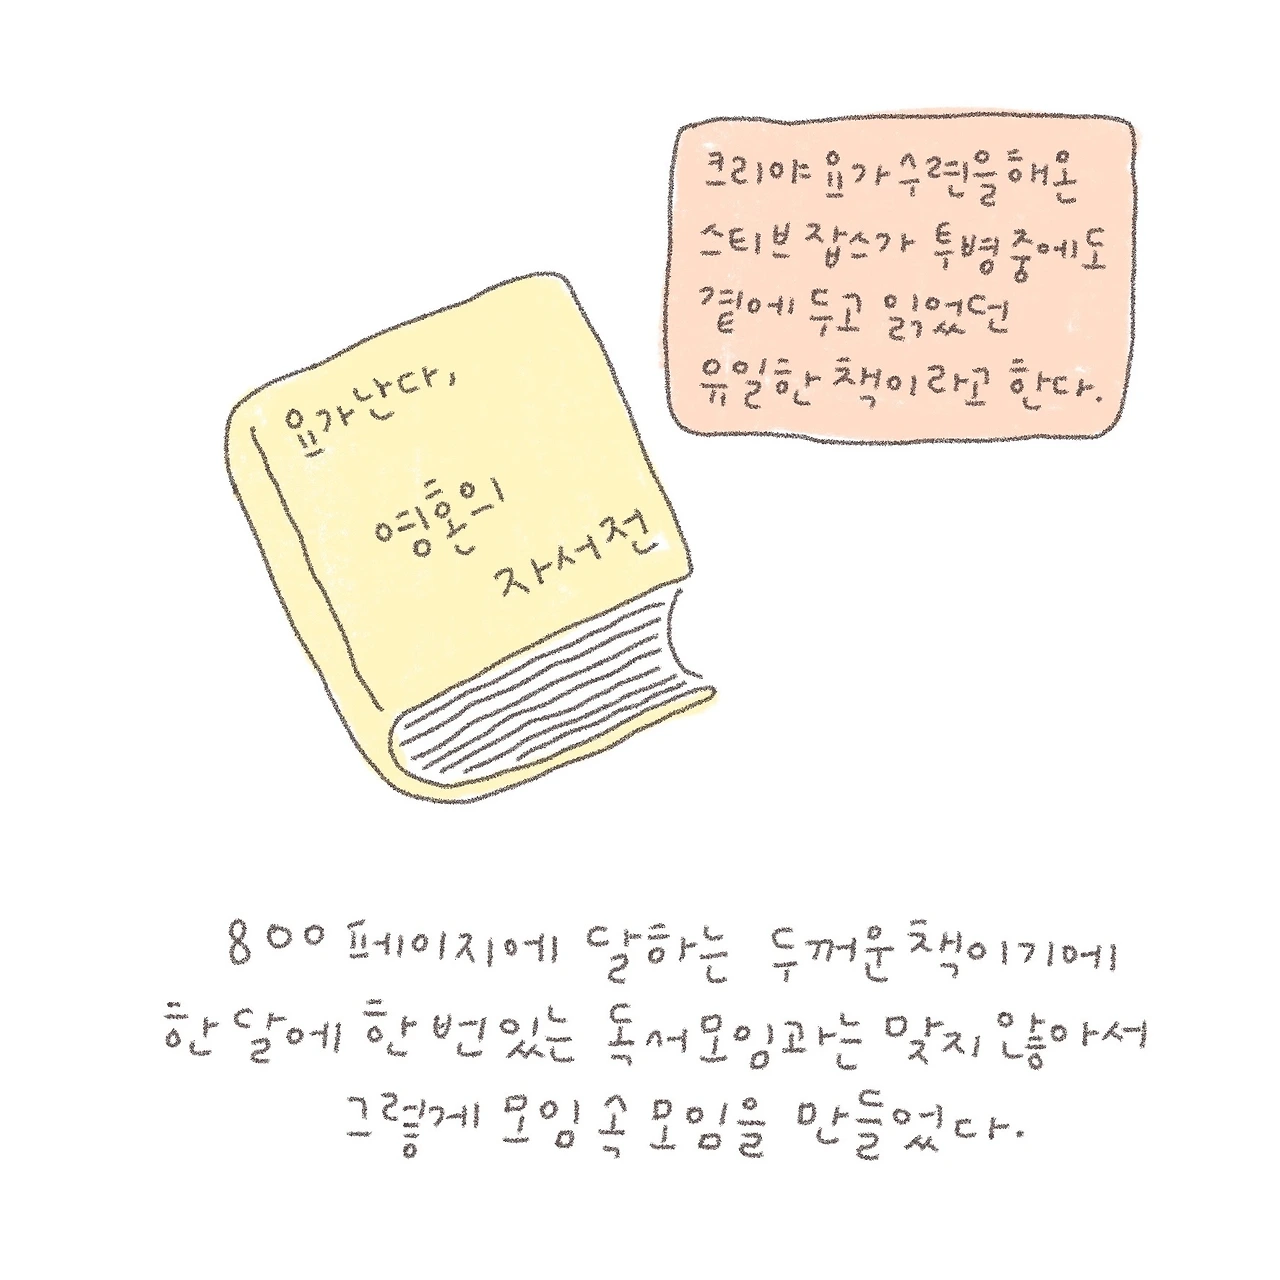 크리야 요가 수련을 해온
스티브 잡스가 투병 중에도
곁에 두고 읽었던
유일한 책이라고 한다.
요가난다,
영혼의
자서전
800 페이지에 달하는 두꺼운 책이기에
한 달에 한 번 있는 독서모임과는 맞지 않아서
그렇게 모임 속 모임을 만들었다.